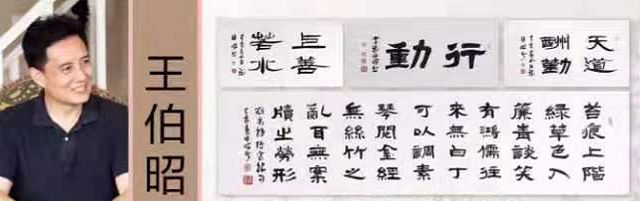 王伯昭
上善
若水
行動
天道
酬勤
苔痕上階
綠草色入
簾青談笑
有鴻儒往
來無白丁
可以調素
琴閱金經
無絲竹之
亂耳無案
牘之勞形